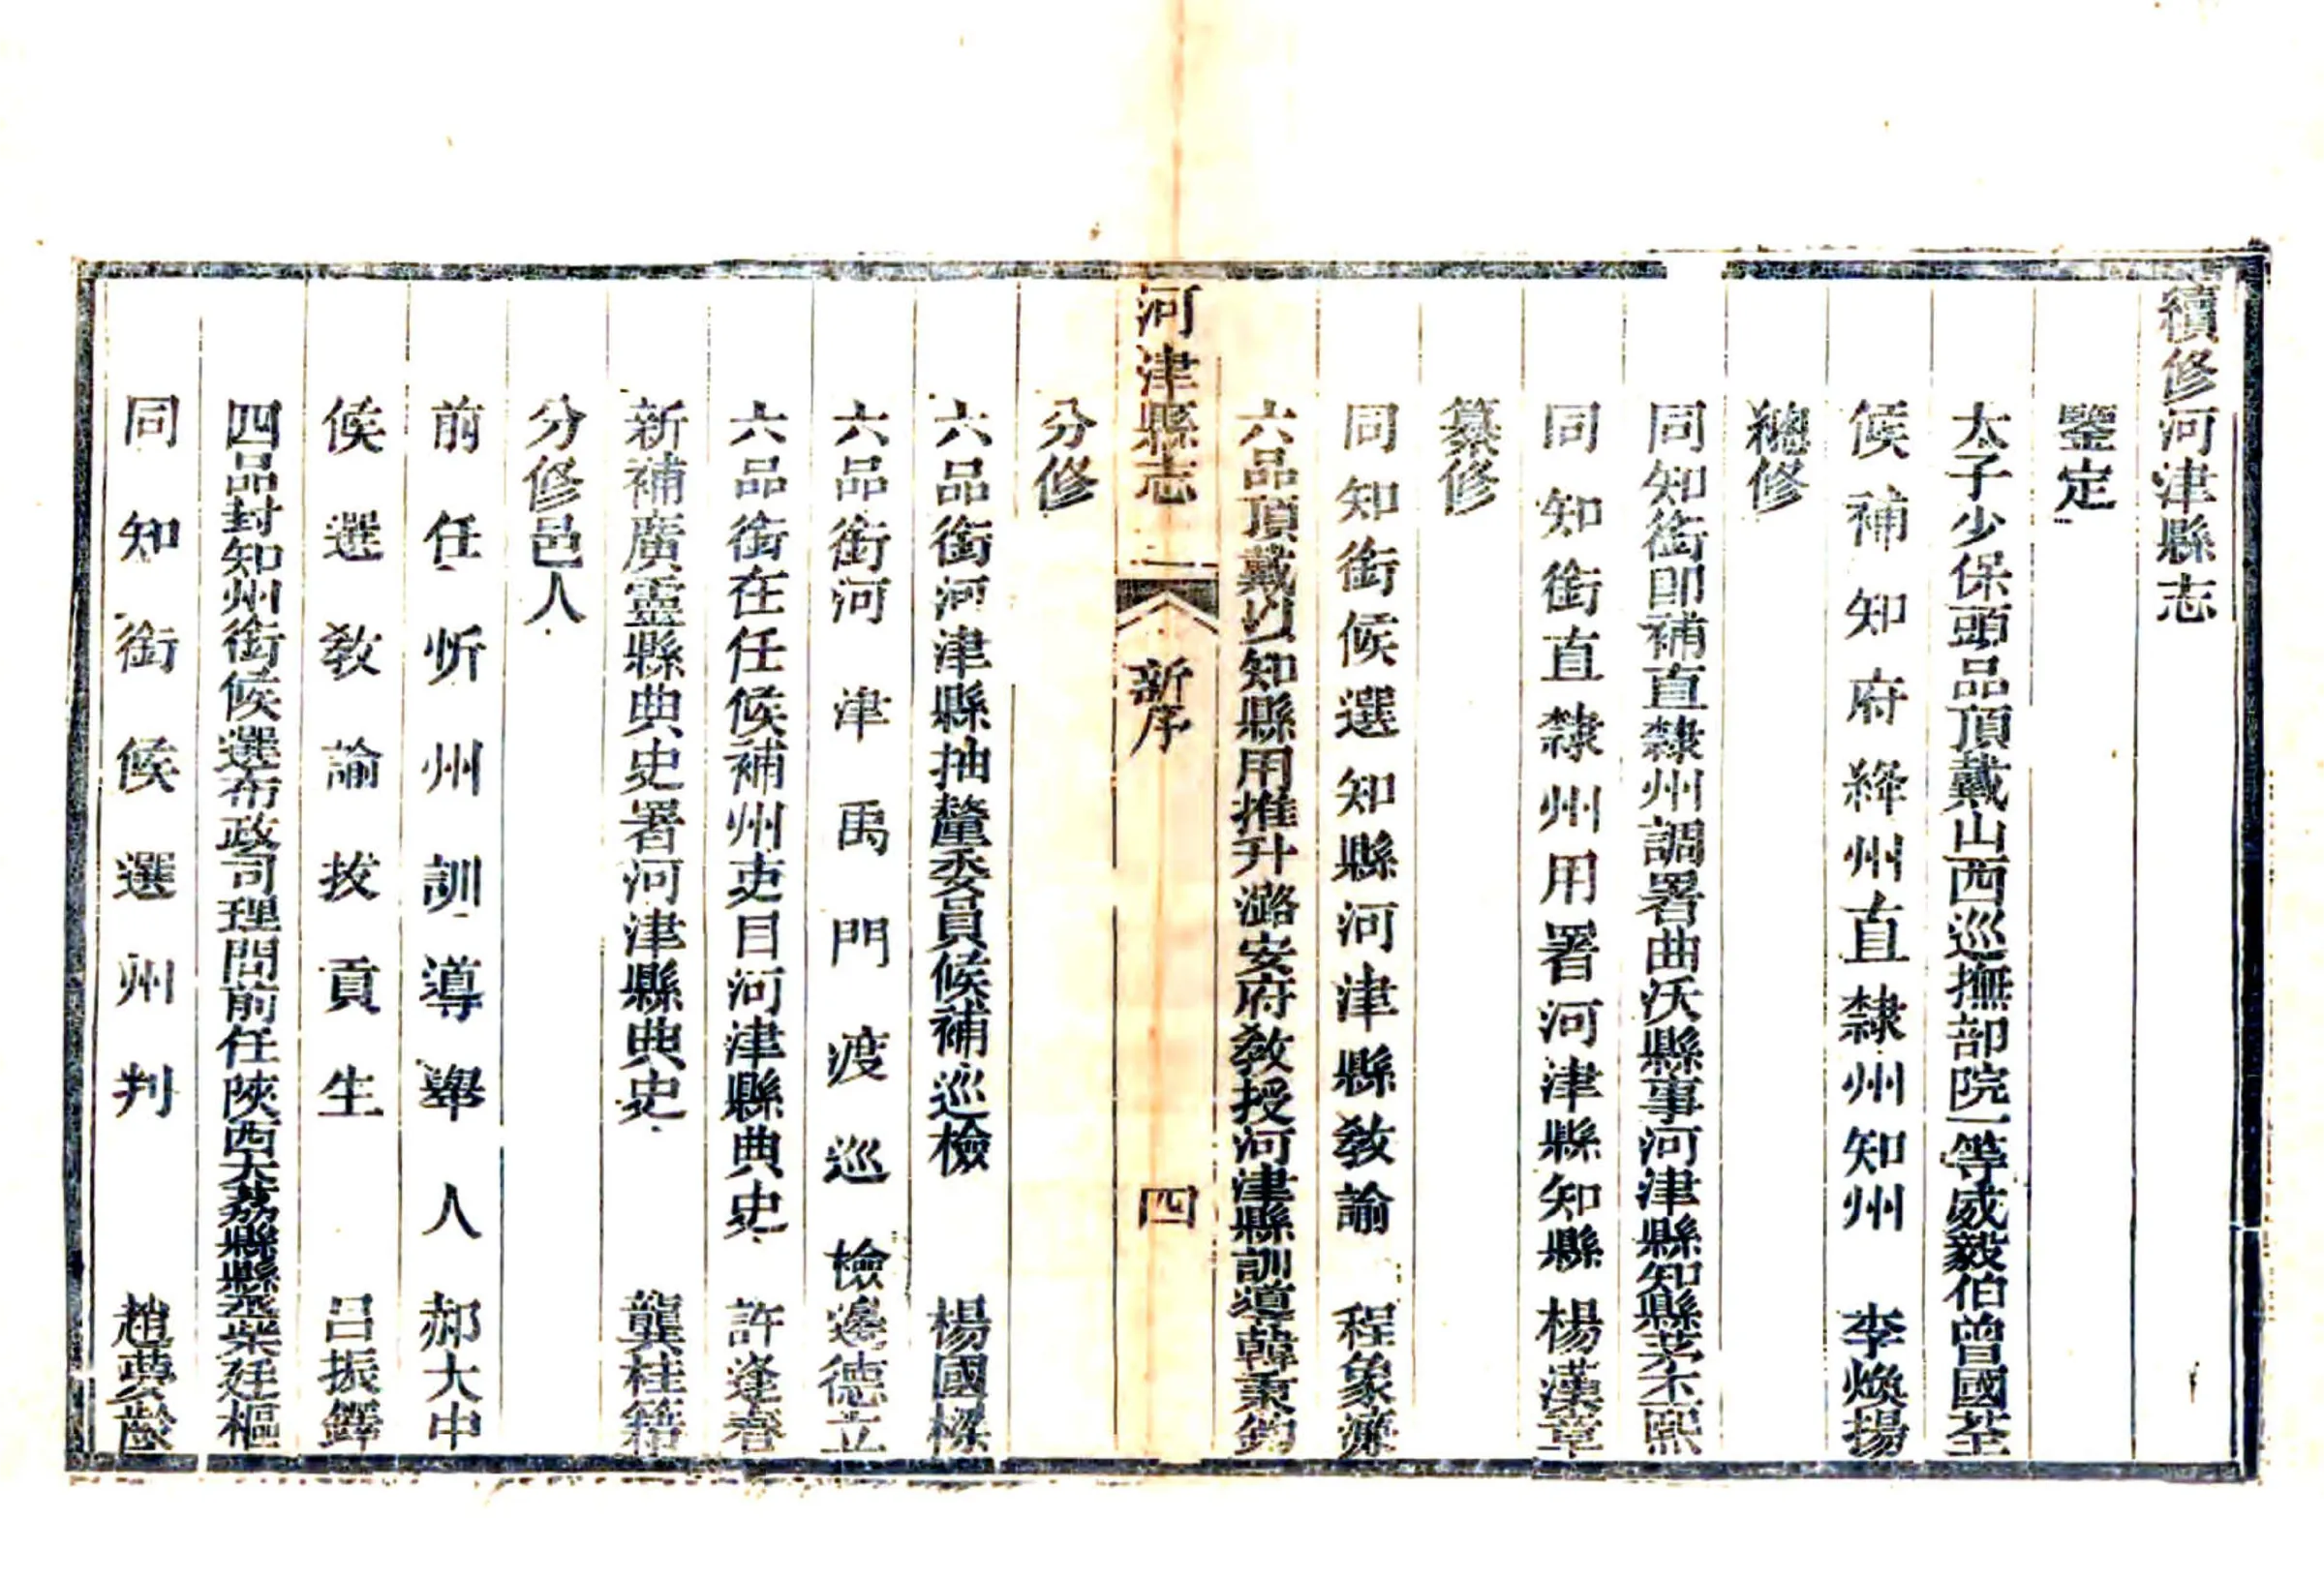 續修河津縣志
鑒定
太子少保頭品頂戴山西巡撫部院一等威毅伯曾國荃
候補知府絳州直隸州知州 李煥揚
總修
同知銜卽補直隸州調署曲沃縣事河津縣知縣茅丕熙
同知銜直隸州用署河津縣知縣 楊漢章
纂修
同知銜候選知縣河津縣敎諭 程象濂
六品頂戴以知縣用推升潞安府敎授河津縣訓道韓秉鈞
河津縣志 新序 四
分修
六品銜河津縣抽釐委員候補巡檢 楊國樑
六品銜河津禹門渡巡檢邊德立
六品銜在任候補州吏目河津縣典史 許逢春
新補廣靈縣典史署河津縣典史 龔桂籍
分修邑人
前任忻州訓導舉人 郝大中
候選敎諭拔貢生 呂振鐸
四品封知州銜候選布政司理問前任陝西大荔縣縣丞柴廷樞
同知銜候選州判 趙夢齡